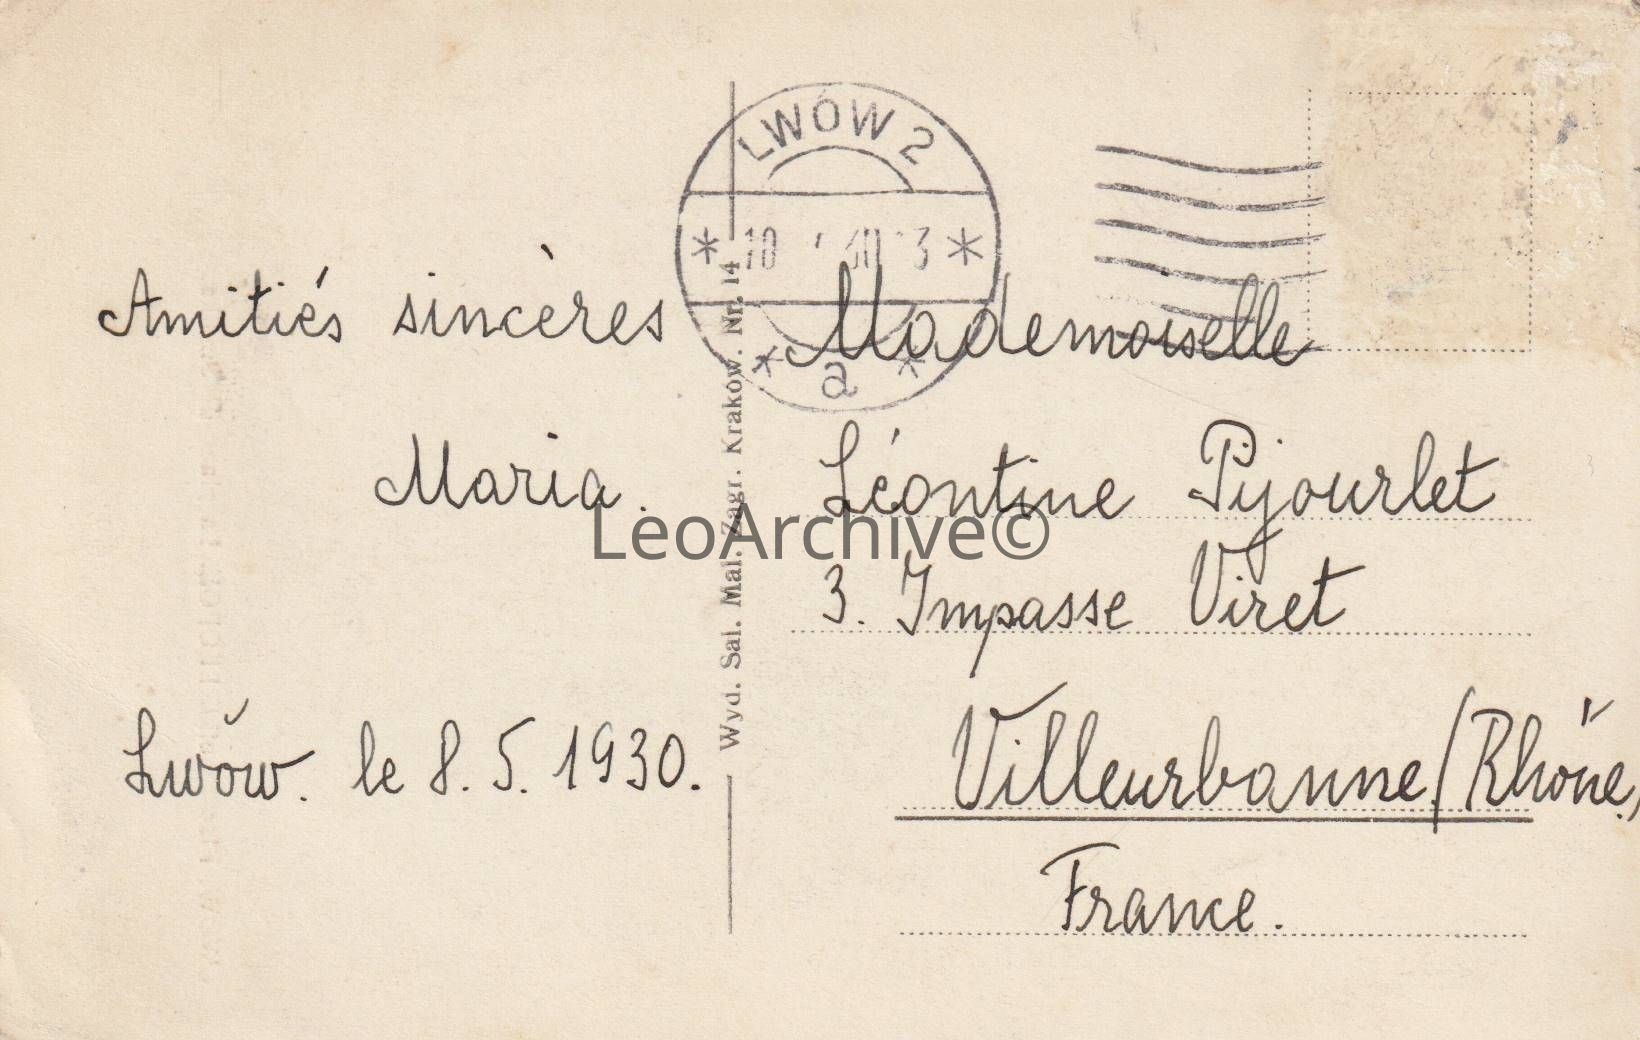 LWÓW 2
* 10 * 
* a *
Amitiés sincères
Maria.
Lwów. le 8. 5. 1930.
Wyd. Sal. Mal. Zagr. Kraków. Nr. 14
Mademoiselle
Léontine Pijourlet
3. Impasse Viret
Villeurbanne/Rhône/
France.
LeoArchive©